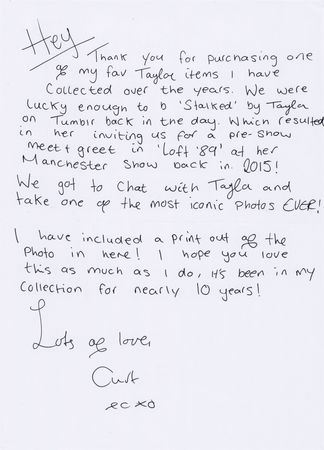 Hey
Thank you for purchasing one
of my fav Taylor items I have
Collected over the years. We were
lucky enough to b 'Stalked' by Taylor
on Tumblr back in the day. Which resulted
in her inviting us for a pre-show
meet + greet in 'Loft '89' at her
Manchester Show back in 2015!
We got to Chat with Taylor and
take one of the most iconic photos EVER!
I have included a print out of the
Photo in here! I hope you love
this as much as I do, it's been in my
Collection for nearly 10 years!
Lots of love,
Curt
xo